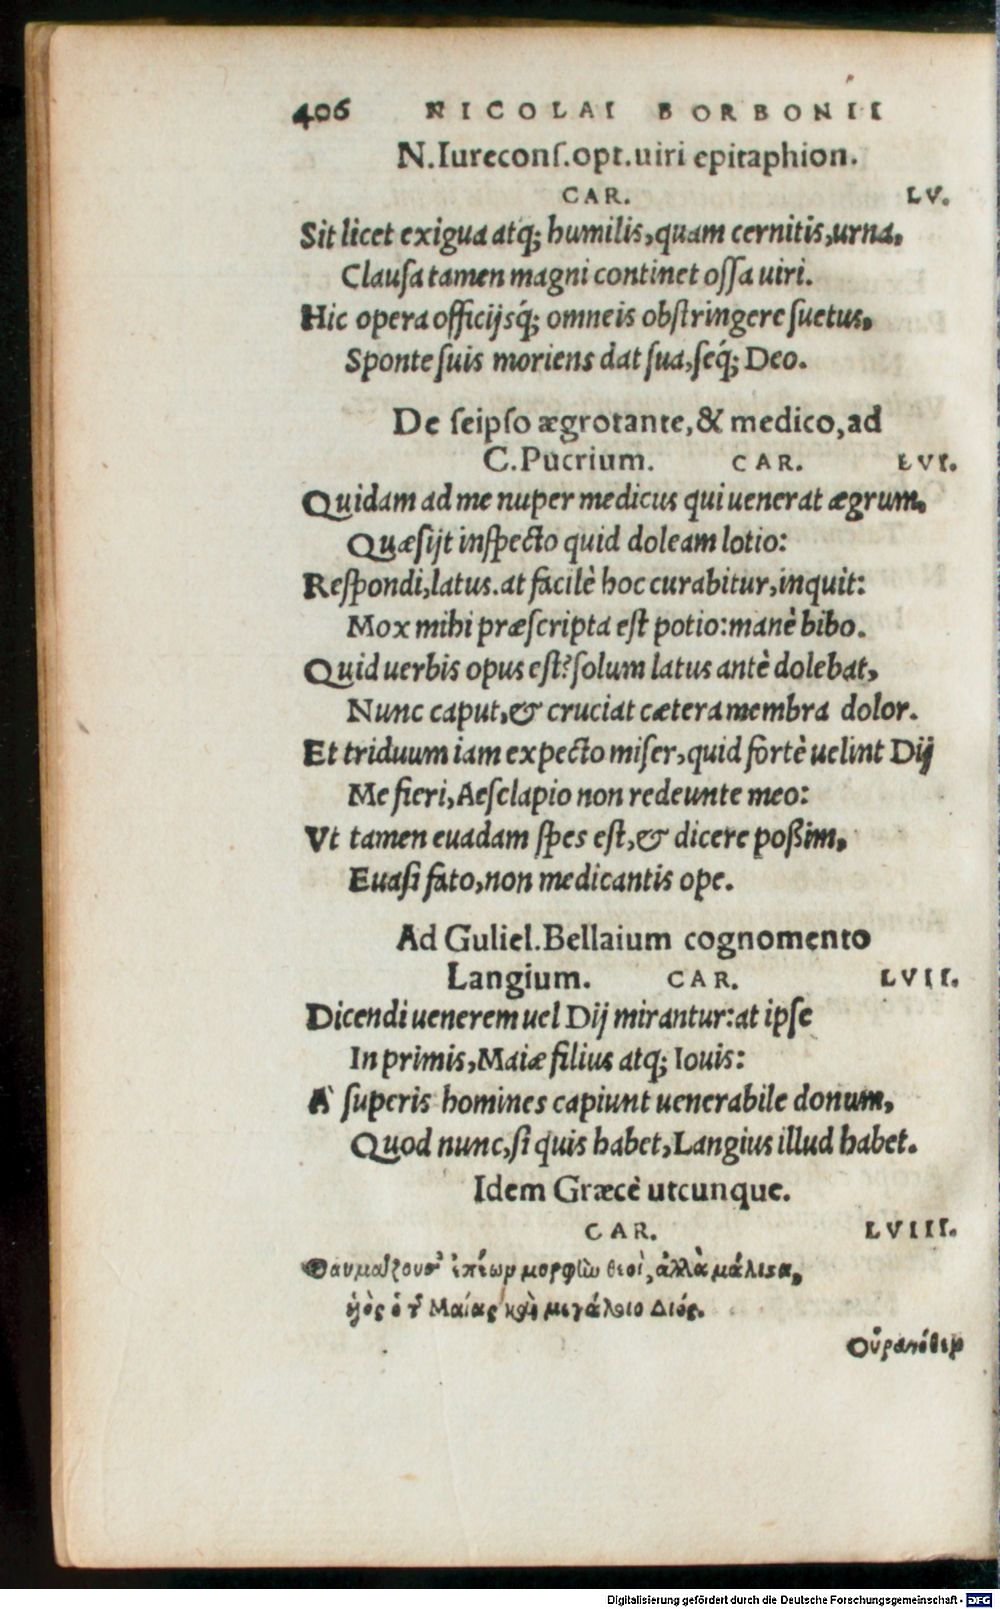 406 NICOLAI BORBONII
N. Iurecons. opt. uiri epitaphion.
CAR. LV.
Sit licet exigua atq; humilis, quam cernitis, urna,
Clausa tamen magni continet ossa uiri.
Hic opera officijsq́; omneis obstringere suetus,
Sponte suis moriens dat sua, seq́; Deo.
De seipso ægrotante, & medico, ad
C. Pucrium. CAR. LVI.
Quidam ad me nuper medicus qui uenerat ægrum,
Quæsijt inspecto quid doleam lotio:
Respondi, latus. at facilè hoc curabitur, inquit:
Mox mihi præscripta est potio: manè bibo.
Quid uerbis opus est? solum latus antè dolebat,
Nunc caput, & cruciat cætera membra dolor.
Et triduum iam expecto miser, quid fortè uelint Dij
Me fieri, Aesclapio non redeunte meo:
Vt tamen euadam spes est, & dicere poßim,
Euasi fato, non medicantis ope.
Ad Guliel. Bellaium cognomento
Langium. CAR. LVII.
Dicendi uenerem uel Dij mirantur: at ipse
In primis, Maiæ filius atq; Iouis:
A' superis homines capiunt uenerabile donum,
Quod nunc, si quis habet, Langius illud habet.
Idem Græcè utcunque.
CAR. LVIII.
Θαυμάζουσ' ἐπέων μορφὴν θεοὶ, ἀλλὰ μάλιστα,
ὑὸς ὁ τ Μαίας καὶ μεγάλοιο Διός.
Οὐρανόθεν
Digitalisierung gefördert durch die Deutsche Forschungsgemeinschaft - DFG